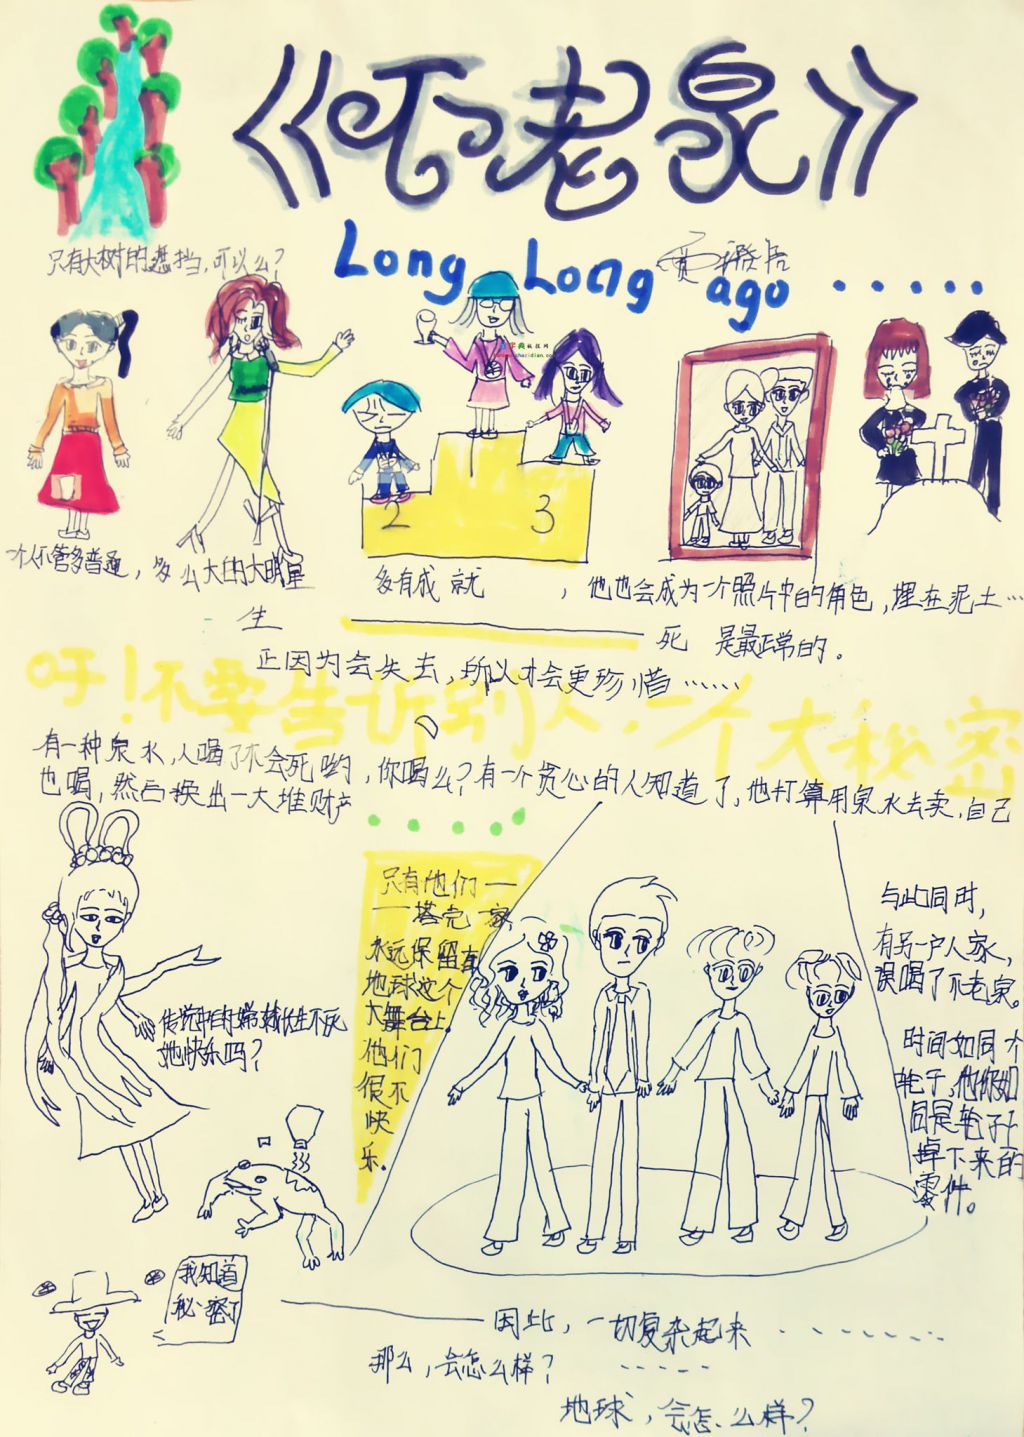 《不老泉》
Long Long ago ······
只有大树的遮挡，可以么？
2
3
一个人不管多普通，多么大的大明星
多有成就，他也会成为一个照片中的角色，埋在泥土…
生
死 是最正常的。
正因为会失去，所以才会更珍惜……
吁！不要告诉别人，一个大秘密
有一种泉水，人喝了不会死哟，你喝么？有一个贪心的人知道了，他打算用泉水去卖，自己
也喝，然后换出一大堆财产
只有他们一
一塔克一家
永远保留在
地球这个
大舞台上。
他们
很不
快
乐。
与此同时，
有另一户人家，
误喝了不老泉。
时间如同个
轮子，他们如
同是轮子上
掉下来的
零件。
传说中的嫦娥长生不死
她快乐吗？
我知道
秘密了
因此，一切复杂起来
那么，会怎么样？
地球，会怎么样？